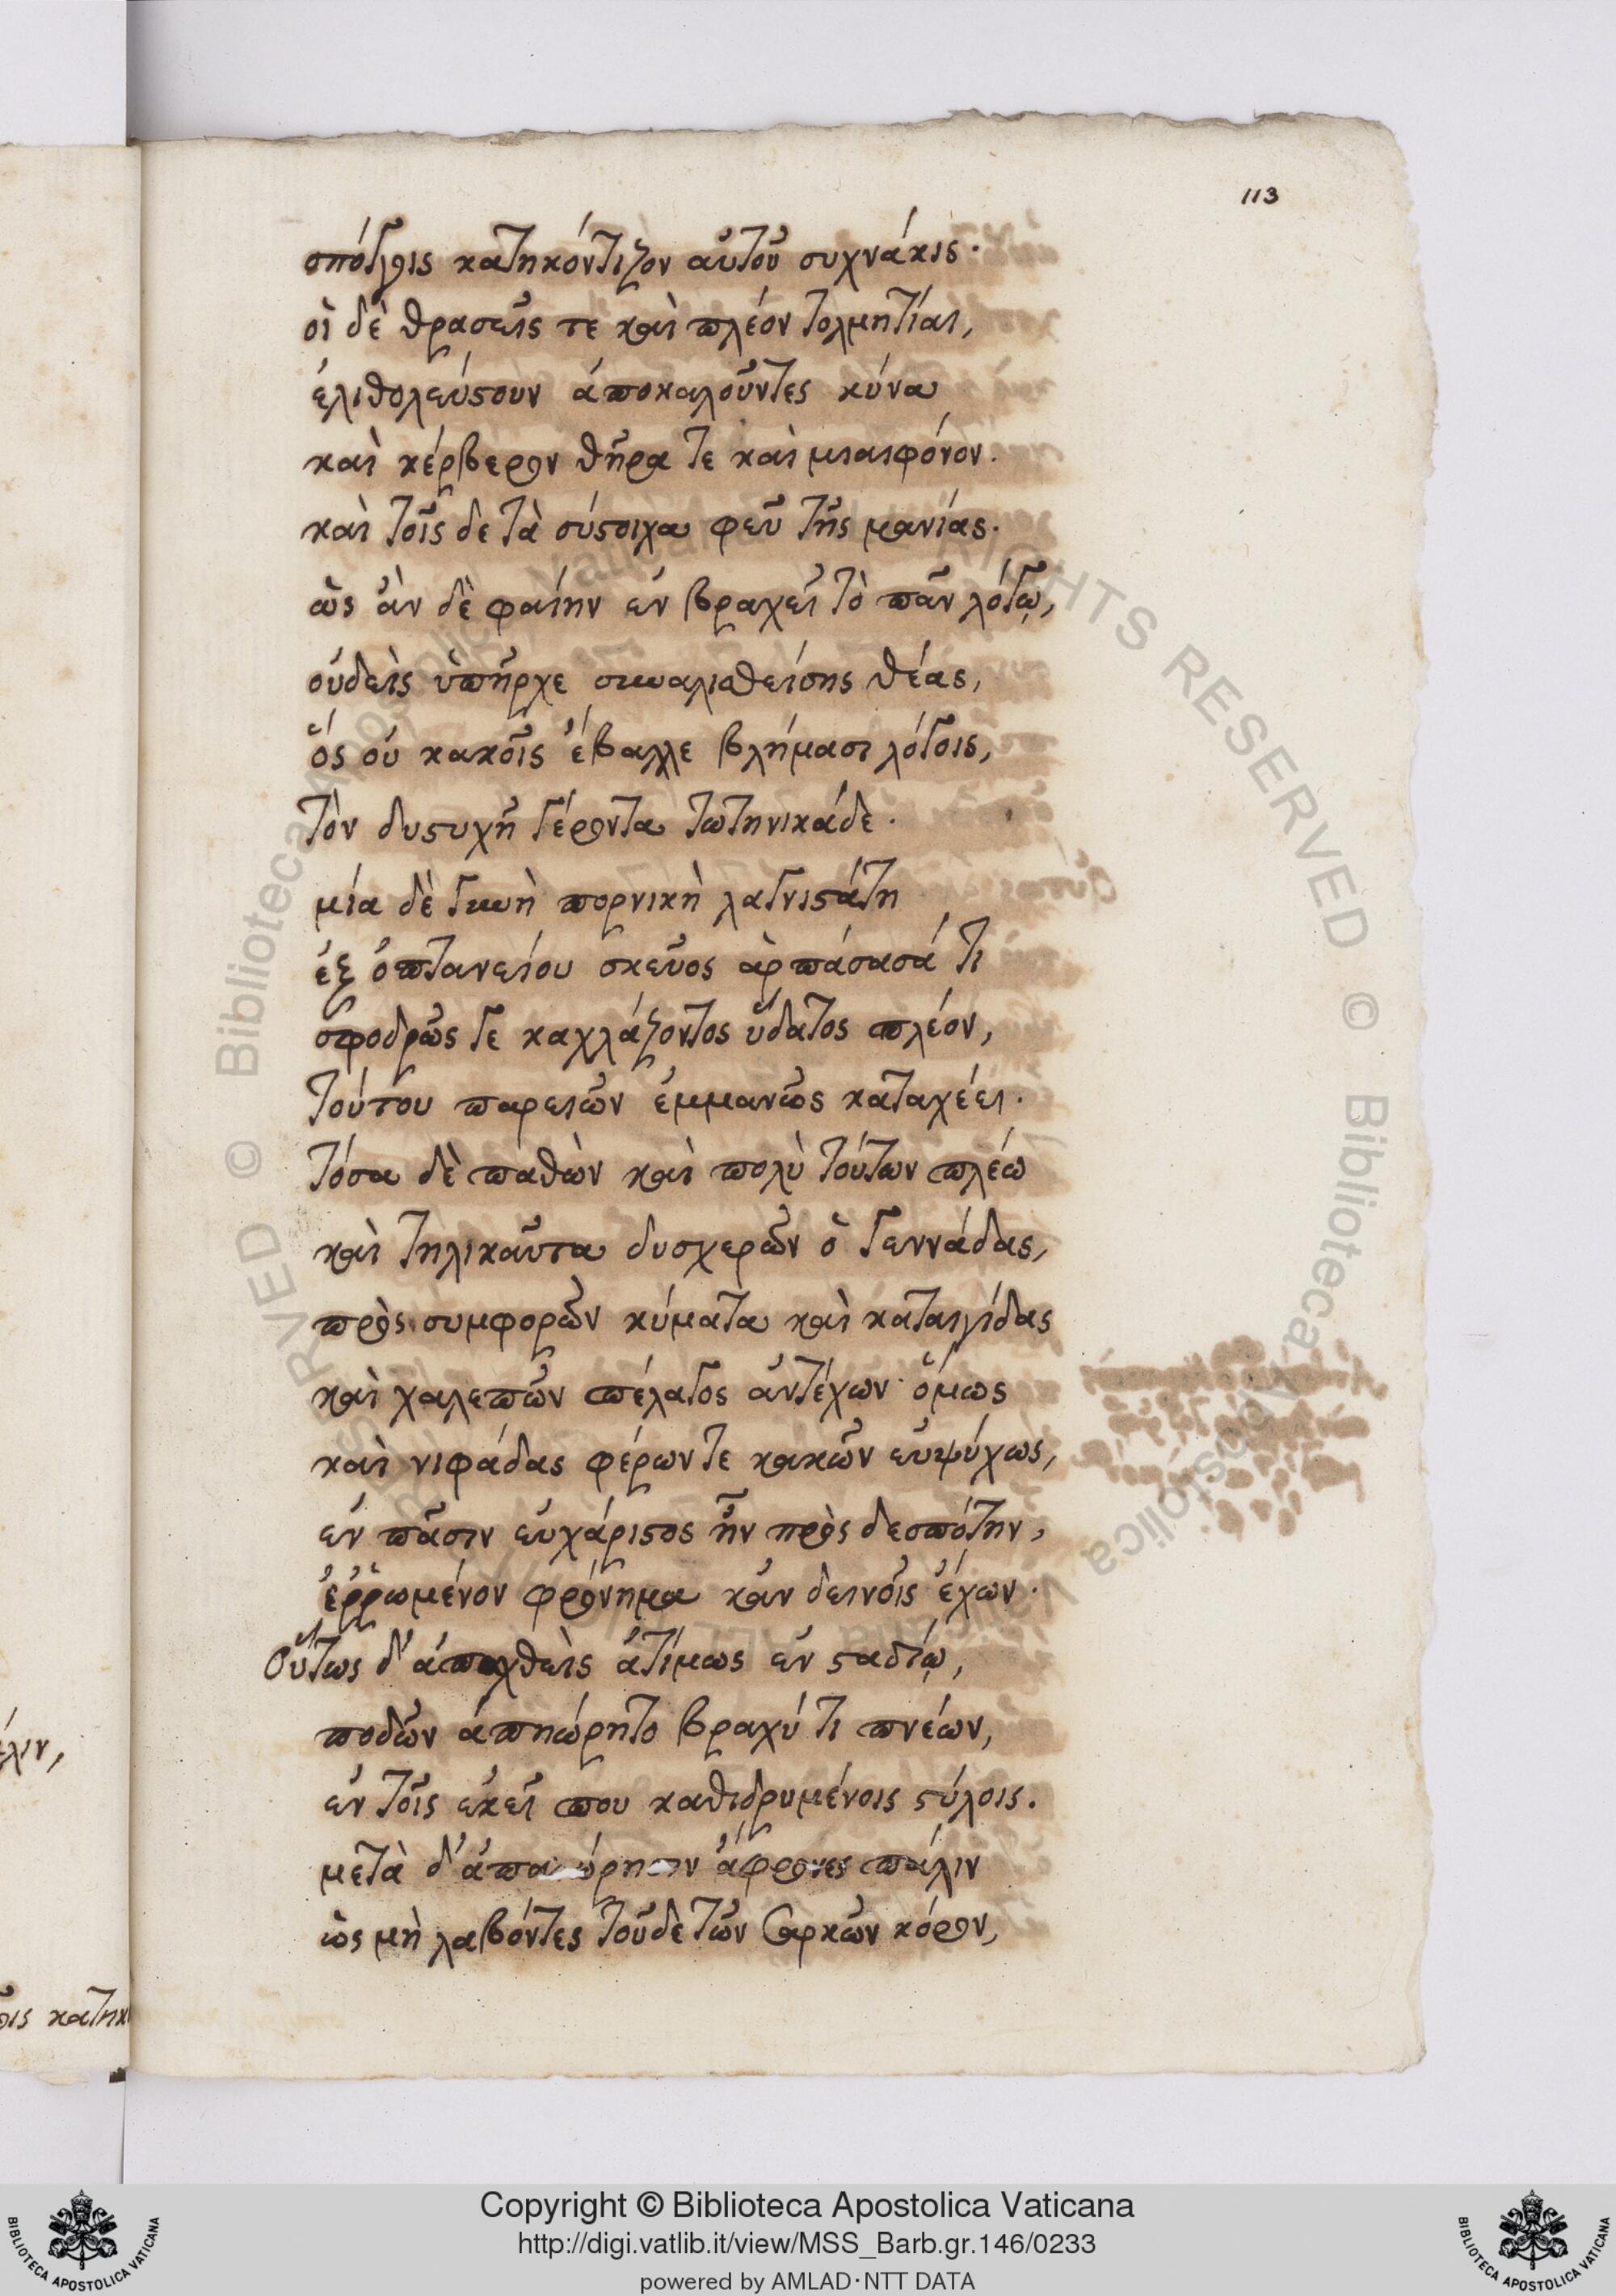 113
σπόγγοις κατηκόντιζον αὐτοῦ συχνάκις·
οἱ δὲ θρασεῖς τε καὶ πλέον τολμητίαι,
ἐλιθολεύστουν ἀποκαλοῦντες κύνα
καὶ κέρβερον θῆρα τε καὶ μιαιφόνον.
καὶ τοῖς δε τὰ σύστοιχα φεῦ τῆς μανίας.
ὡς ἂν δὲ φαίην ἐν βραχεῖ τὸ πᾶν λόγῳ,
οὐδεὶς ὑπῆρχε συναλισθείσης θέας,
ὃς οὐ κακοῖς ἔβαλλε βλήμασι λόγοις,
τὸν δυστυχῆ γέροντα τωτηνικάδε.
μία δὲ γυνὴ πορνικὴ λαγνιστάτη
ἐξ ὀπτανείου σκεῦος ἁρπάσασά τι
σφοδρῶς γε καχλάζοντος ὕδατος πλέον,
τούτου παρειῶν ἐμμανῶς καταχέει.
τόσα δὲ παθὼν καὶ πολὺ τούτων πλέω
καὶ τηλικαῦτα δυσχερῶν ὁ γεννάδας,
πρὸς συμφορῶν κύματα καὶ καταιγίδας
καὶ χαλεπῶν πέλαγος ἀντέχων ὅμως
καὶ νιφάδας φέρων τε κακῶν εὐψύχως,
ἐν πᾶσιν εὐχάριστος ἦν πρὸς δεσπότην,
ἐῤῥωμένον φρόνημα κἂν δεινοῖς ἔχων.
Οὕτως δ' ἀπαχθεὶς ἀτίμως ἐν σταδίῳ,
ποδῶν ἀπῃώρητο βραχύ τι πνέων,
ἐν τοῖς ἐκεῖ που καθιδρυμένοις στύλοις.
μετὰ δ' ἄφρονες πάλιν
ὡς μὴ λαβόντες τοῦδε τῶν σαρκῶν κόρον,
Copyright © Biblioteca Apostolica Vaticana
http://digi.vatlib.it/view/MSS_Barb.gr.146/0233
powered by AMLAD·NTT DATA